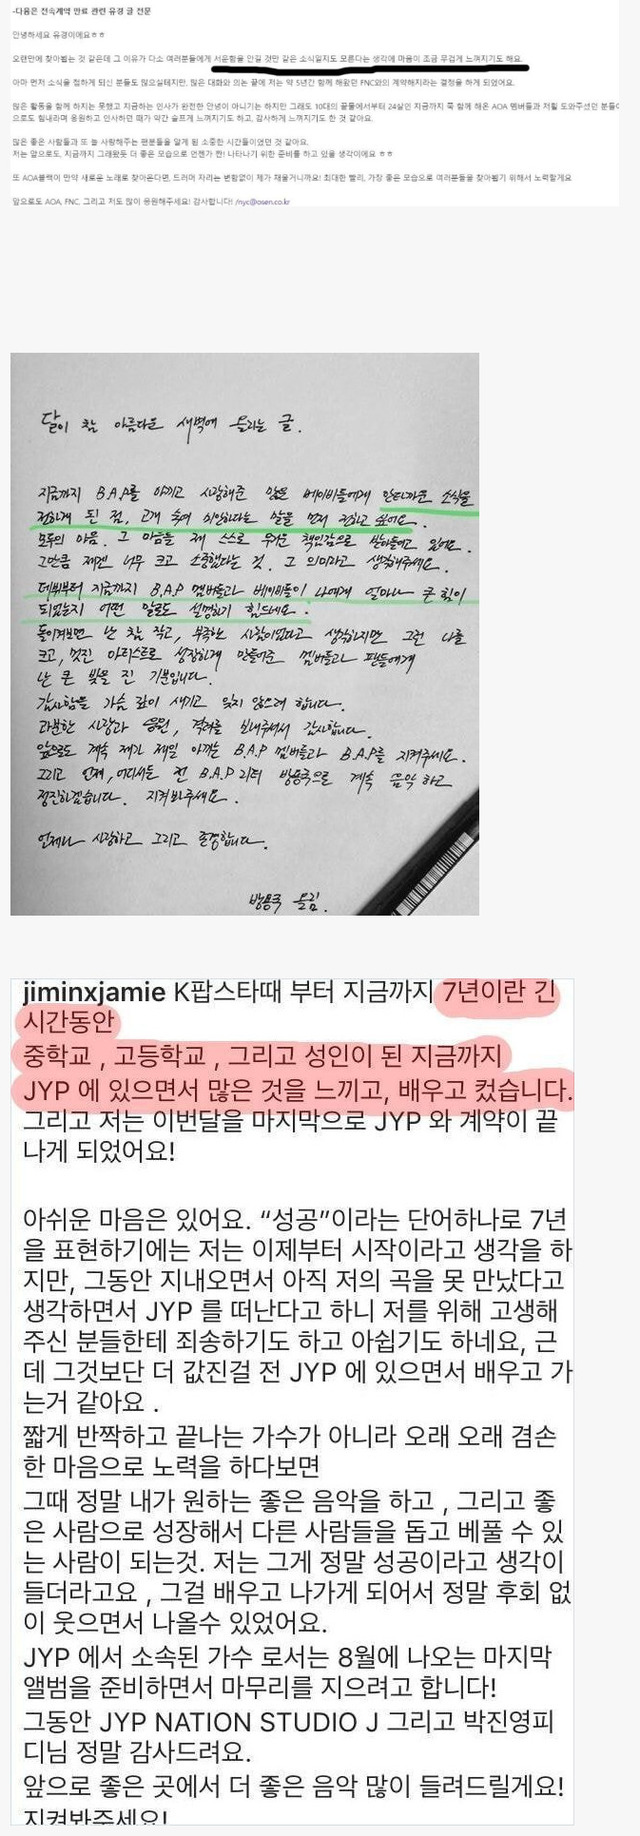 -다음은 전속계약 만료 관련 유경 글 전문
안녕하세요 유경이에요ㅎㅎ
오랜만에 찾아뵙는 것 같은데 그 이유가 다소 여러분들에게 서운함을 안길 것만 같은 소식일지도 모른다는 생각에 마음이 조금 무겁게 느껴지기도 해요.
아마 먼저 소식을 접하게 되신 분들도 많으실테지만, 많은 대화와 의논 끝에 저는 약 5년간 함께 해왔던 FNC와의 계약해지라는 결정을 하게 되었어요.
많은 활동을 함께 하지는 못했고 지금하는 인사가 완전한 안녕이 아니기는 하지만 그래도 10대의 끝물에서부터 24살인 지금까지 쭉 함께 해온 AOA 멤버들과 저를 도와주셨던 분들
으로도 힘내라며 응원하고 인사하던 때가 약간 슬프게 느껴지기도 하고, 감사하게 느껴지기도 한 것 같아요.
많은 좋은 사람들과 또 늘 사랑해주는 팬분들을 알게 된 소중한 시간들이었던 것 같아요.
저는 앞으로도, 지금까지 그래왔듯 더 좋은 모습으로 언젠가 짠! 나타나기 위한 준비를 하고 있을 생각이에요 ㅎㅎ
또 AOA블랙이 만약 새로운 노래로 찾아온다면, 드러머 자리는 변함없이 제가 채울거니까요! 최대한 빨리, 가장 좋은 모습으로 여러분들을 찾아뵙기 위해서 노력할게요
앞으로도 AOA, FNC, 그리고 저도 많이 응원해주세요! 감사합니다! /nyc@osen.co.kr
달이 참 아름다운 새벽에 올리는 글.
지금까지 B.A.P를 아끼고 사랑해준 많은 베이비들에게 안타까운 소식을
전하게 된 점, 고개 숙여 미안하다는 말을 먼저 전하고 싶어요.
모두의 마음. 그 마음들 제 스스로 무거운 책임감으로 받아들이고 있어요.
그만큼 제겐 너무 크고 소중했다는 것. 그 의미라고 생각해주세요.
데뷔부터 지금까지 B.A.P 멤버들과 베이비들이 나에게 얼마나 큰 힘이
되었는지 어떤 말로도 설명하기 힘드네요.
돌이켜보면 난 참 작고, 부족한 사람이었다고 생각하지만 그런 나를
크고, 멋진 아티스트로 성장하게 만들어준 멤버들과 팬들에게
난 큰 빚을 진 기분입니다.
감사함을 가슴 깊이 새기고 잊지 않으려 합니다.
과분한 사랑과 응원, 격려를 보내주셔서 감사합니다.
앞으로도 계속 제가 제일 아끼는 B.A.P 멤버들과 B.A.P를 지켜주세요.
그리고 언제, 어디서든 전 B.A.P 리더 방용국으로 계속 음악 하고
정진하겠습니다. 지켜봐주세요.
언제나 사랑하고 그리고 존경합니다.
방용국 올림.
jiminxjamie K팝스타때 부터 지금까지 7년이란 긴
시간동안
중학교 , 고등학교 , 그리고 성인이 된 지금까지
JYP 에 있으면서 많은 것을 느끼고, 배우고 컸습니다.
그리고 저는 이번달을 마지막으로 JYP 와 계약이 끝
나게 되었어요!
아쉬운 마음은 있어요. “성공”이라는 단어하나로 7년
을 표현하기에는 저는 이제부터 시작이라고 생각을 하
지만, 그동안 지내오면서 아직 저의 곡을 못 만났다고
생각하면서 JYP 를 떠난다고 하니 저를 위해 고생해
주신 분들한테 죄송하기도 하고 아쉽기도 하네요, 근
데 그것보단 더 값진걸 전 JYP 에 있으면서 배우고 가
는거 같아요 .
짧게 반짝하고 끝나는 가수가 아니라 오래 오래 겸손
한 마음으로 노력을 하다보면
그때 정말 내가 원하는 좋은 음악을 하고 , 그리고 좋
은 사람으로 성장해서 다른 사람들을 돕고 베풀 수 있
는 사람이 되는것. 저는 그게 정말 성공이라고 생각이
들더라고요 , 그걸 배우고 나가게 되어서 정말 후회 없
이 웃으면서 나올수 있었어요.
JYP 에서 소속된 가수 로서는 8월에 나오는 마지막
앨범을 준비하면서 마무리를 지으려고 합니다!
그동안 JYP NATION STUDIO J 그리고 박진영피
디님 정말 감사드려요.
앞으로 좋은 곳에서 더 좋은 음악 많이 들려드릴게요!
지켜봐주세요!